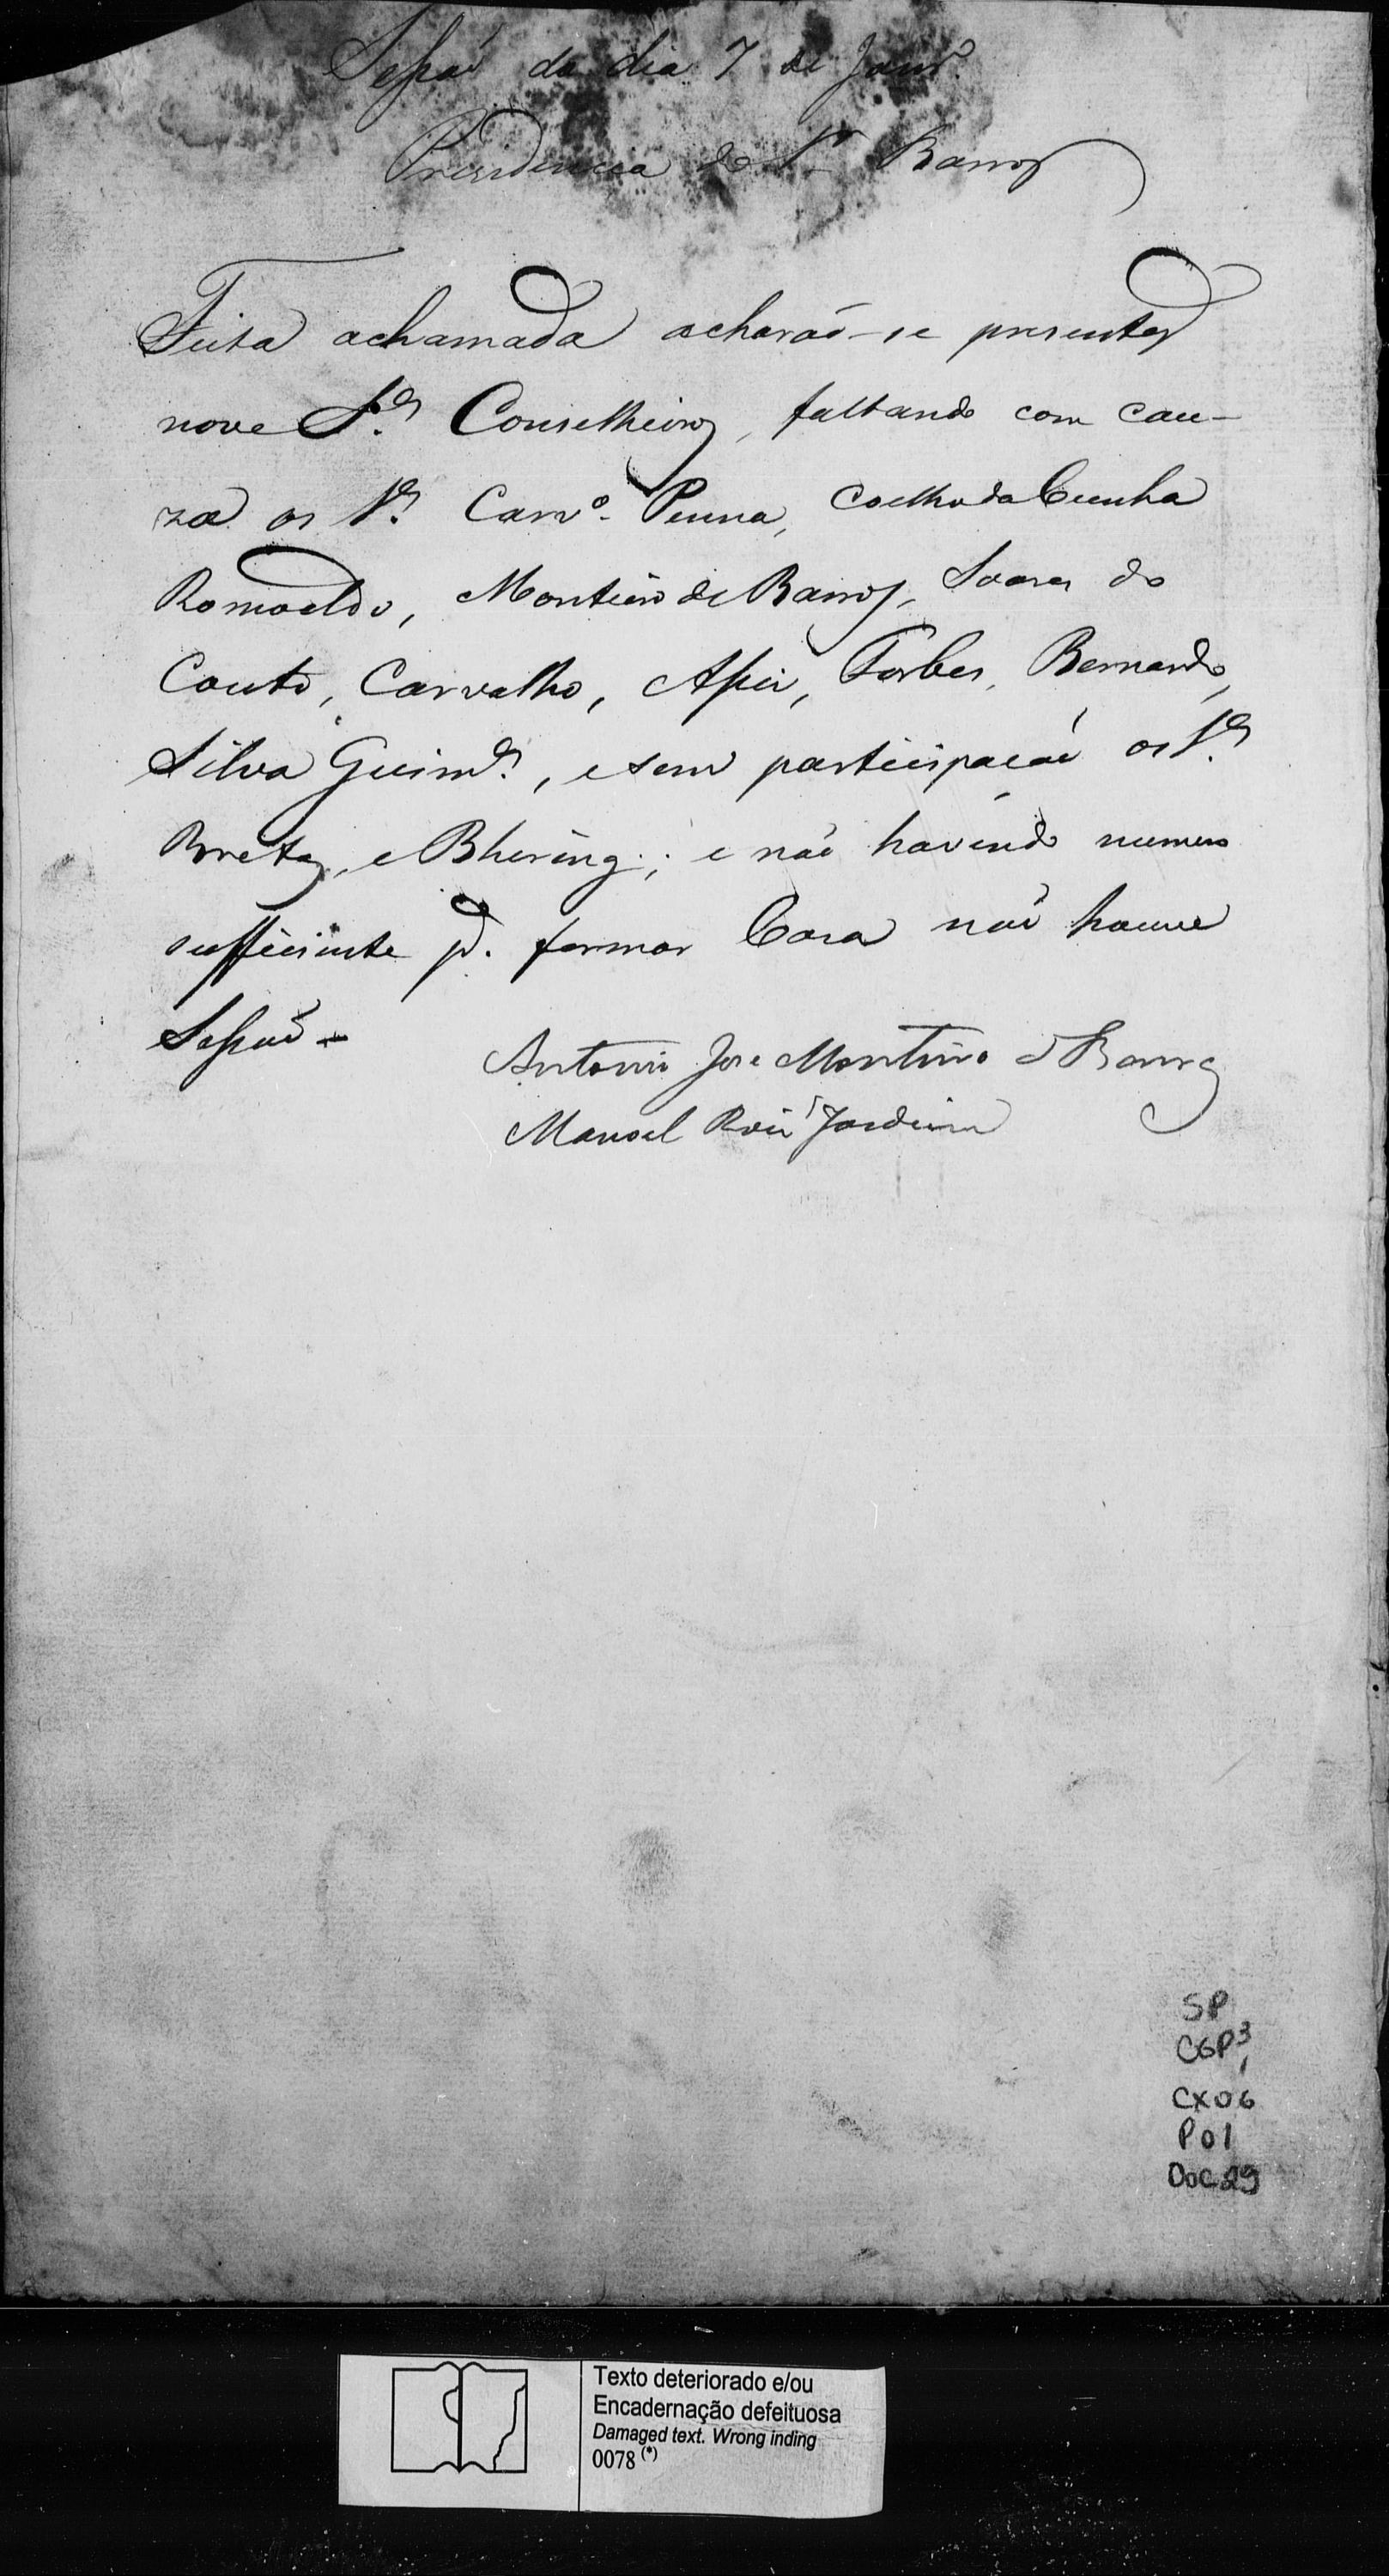 Sessaõ do dia 7 de Janr.º
Presidencia do Sr. Barros
Feita achamada acharaõ-se presentes
nove Srs. Conselheiros, faltando com cau-
za os Srs. Carvº. Penna, Coelho da Cunha
Romoaldo, Monteiro de Barros, Soares do
Couto, Carvalho, Assis, Forbes, Bernardo,
Silva Guimes., e sem participacaõ os Srs.
Bretas, e Bhering; e naõ havendo numero
sufficiente pa. formar Casa naõ houve
Sessaõ -
Antonio Jose Monteiro de Barros
Manoel Roiz Jardim
SP
CGP 3,
CX06
P01
DOC29
Texto deteriorado e/ou
Encadernação defeituosa
Damaged text. Wrong inding
0078 (*)